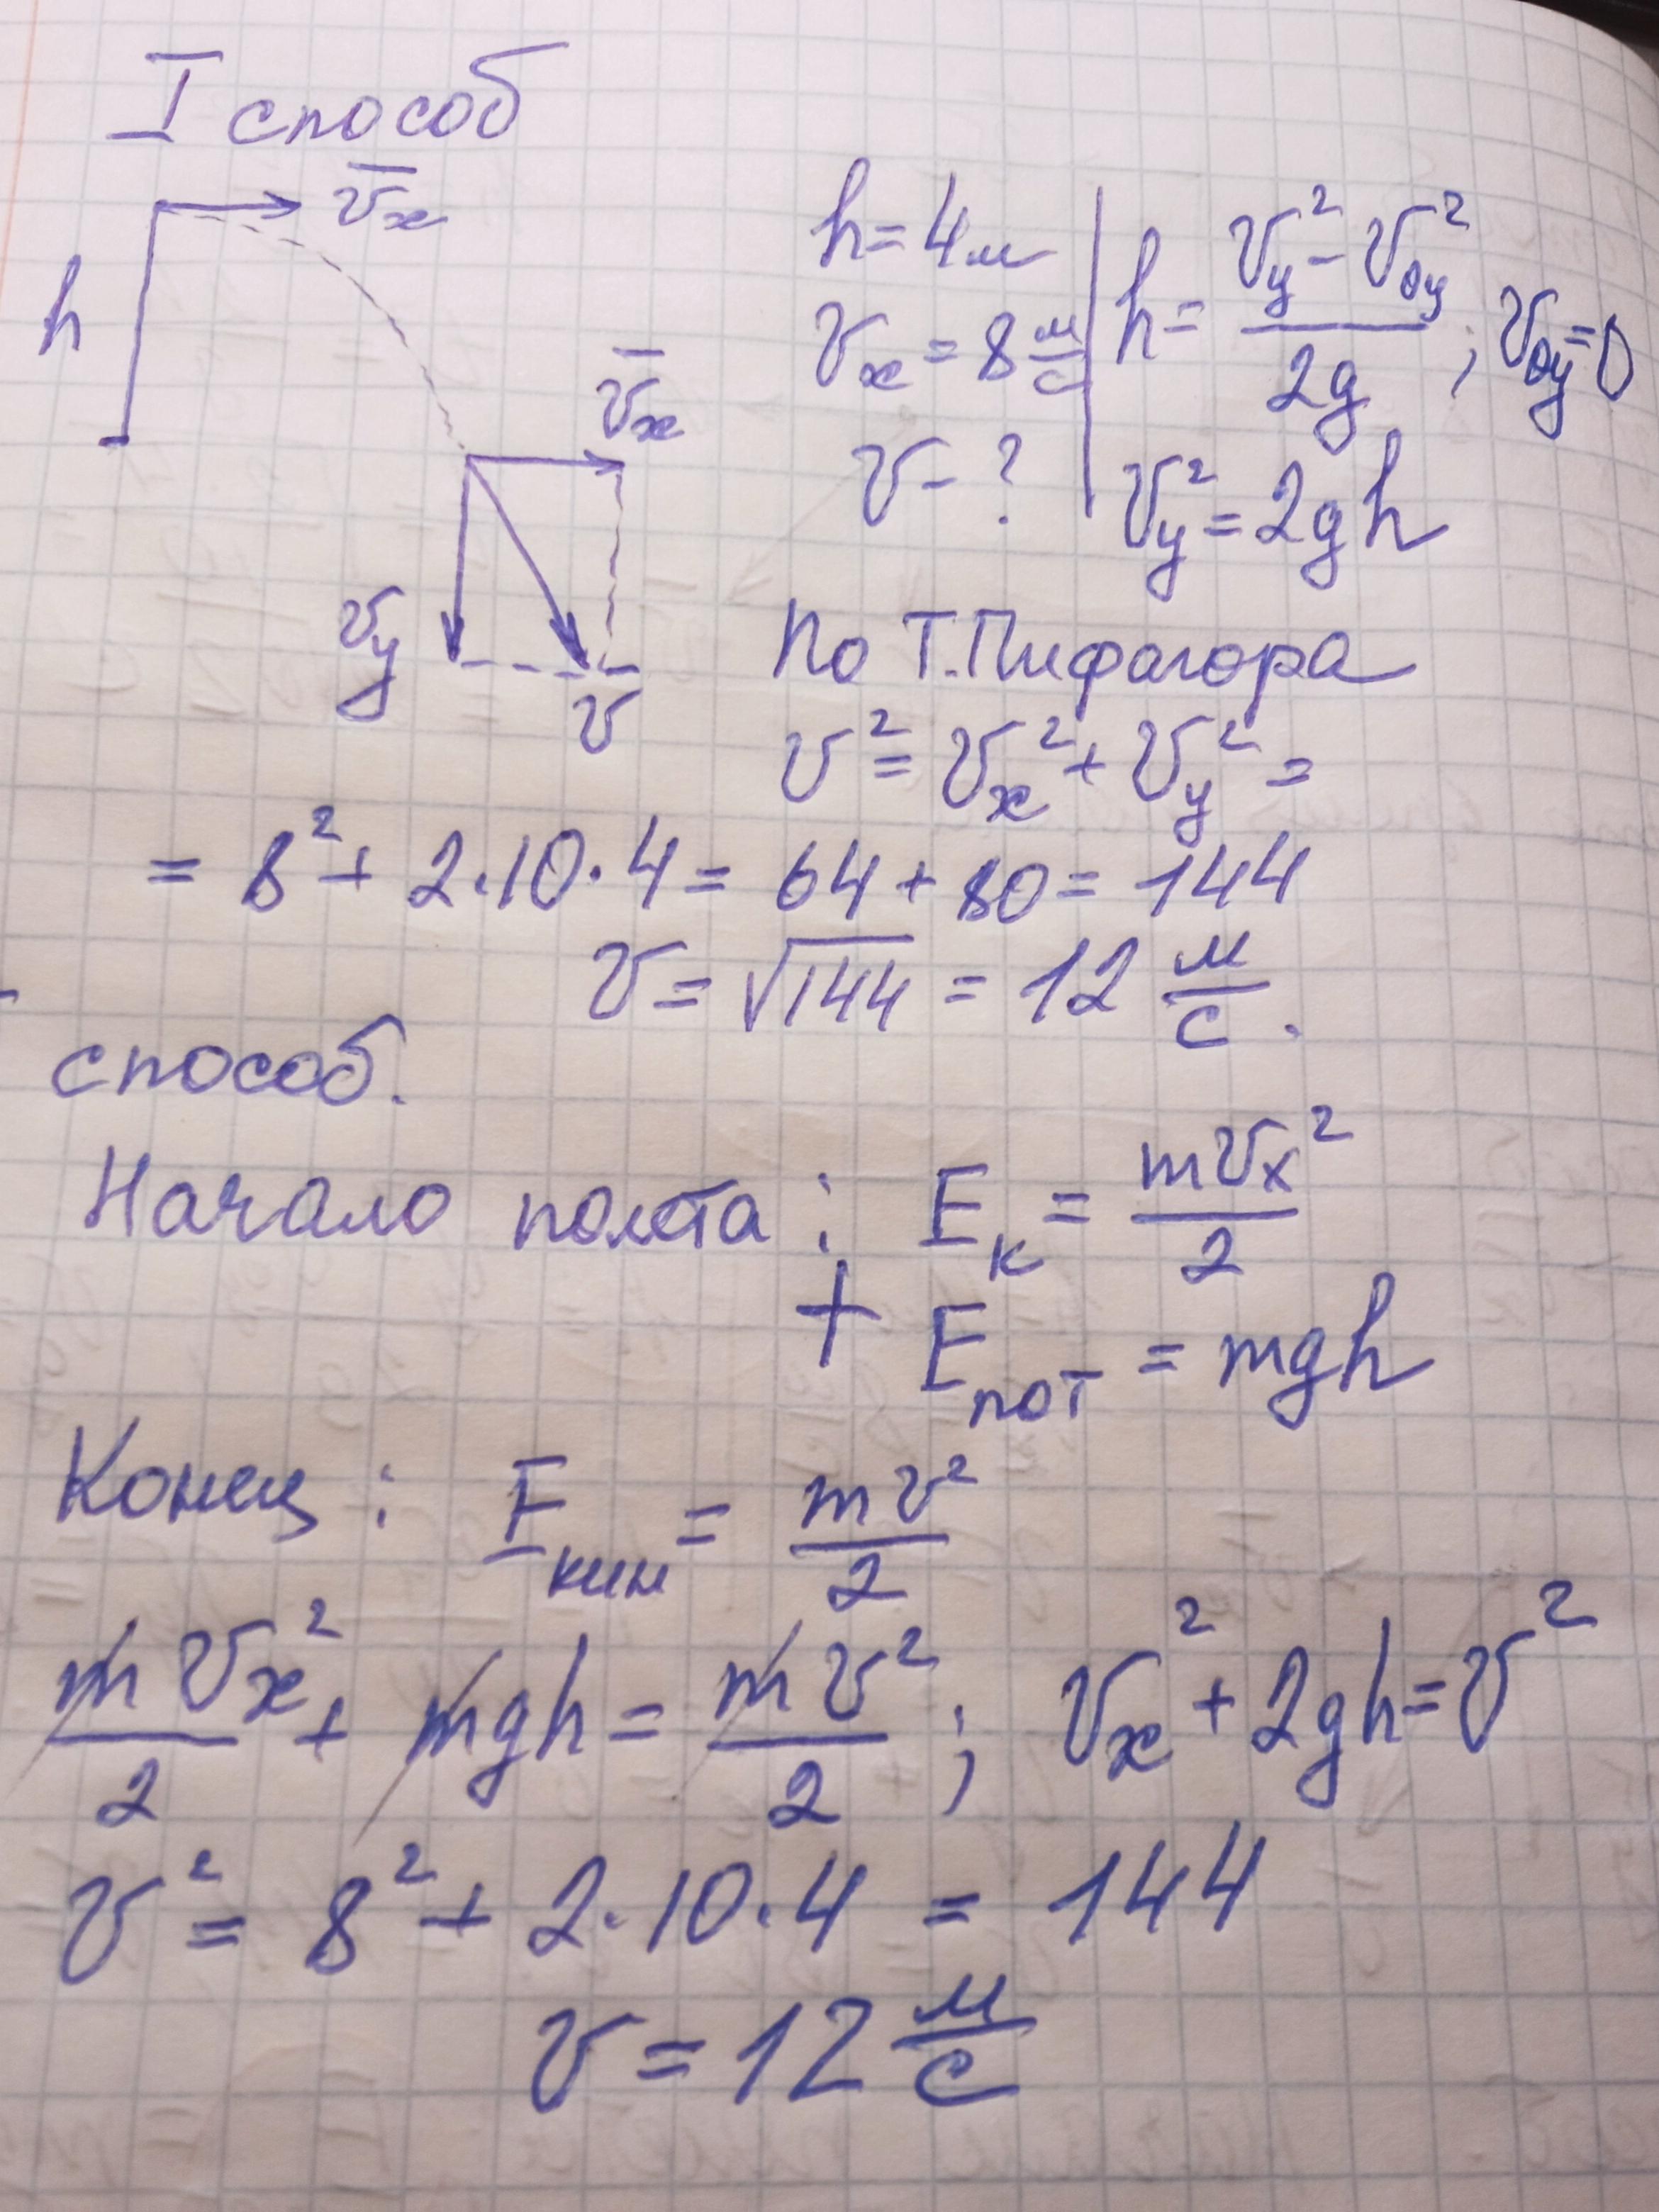 I способ
v̅ₓ
h
h = 4 м
vₓ = 8 м/с
v - ?
h = (v_y² - v_0y²) / 2g ; v_0y = 0
v_y² = 2gh
v̅ₓ
v_y
v
По Т. Пифагора
v² = vₓ² + v_y² =
= 8² + 2·10·4 = 64 + 80 = 144
v = √144 = 12 м/с.
способ.
Начало полета : E_к = mvₓ²/2
+ E_пот = mgh
Конец : E_кин = mv²/2
mvₓ²/2 + mgh = mv²/2 ; vₓ² + 2gh = v²
v² = 8² + 2·10·4 = 144
v = 12 м/с